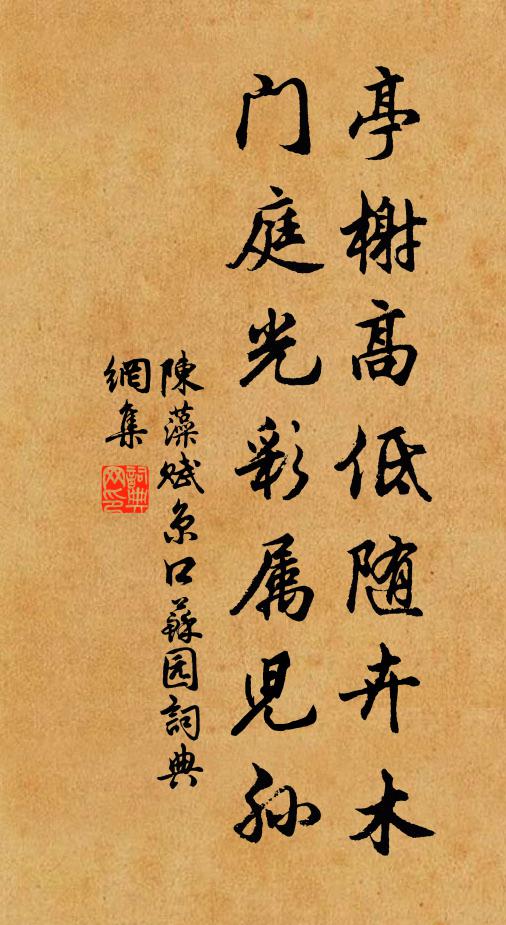 亭榭高低随卉木
门庭光彩属児孙
陳藻赋京口蘇园詞典
網集
詞典
网印